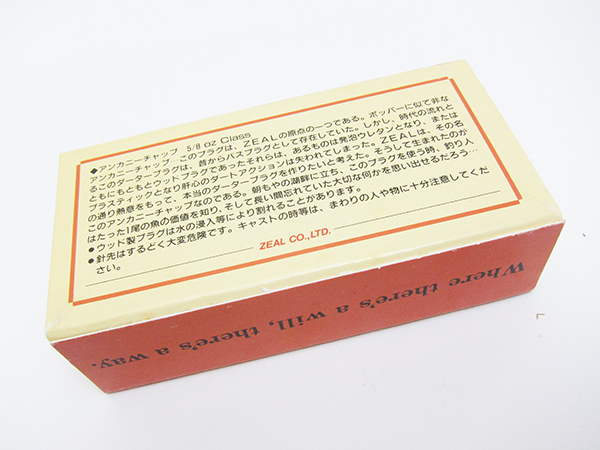 ◆アンカニーチャップ 5/8 oz Class
アンカニーチャップ、このプラグは、ZEALの原点の一つである。ポッパーに似て非な
るこのダータープラグは、昔からバスプラグとして存在していた。しかし、時代の流れと
ともにもともとウッドプラグであったそれらは、あるものは発泡ウレタンとなり、または
プラスティックとなり肝心のダートアクションは失われてしまった。ZEALは、その名
の通り熱意をもって、本当のダータープラグを作りたいと考えた。そうして生まれたのが
このアンカニーチャップなのである。朝もやの湖畔に立ち、このプラグを使う時、釣り人
はたった1尾の魚の価値を知り、そして長い間忘れていた大切な何かを思い出せるだろう…
●ウッド製プラグは水の浸入等により割れることがあります。
●針先はするどく大変危険です。キャストの時等は、まわりの人や物に十分注意してくだ
さい。
ZEAL CO.,LTD.
Where there's a will, there's a way.